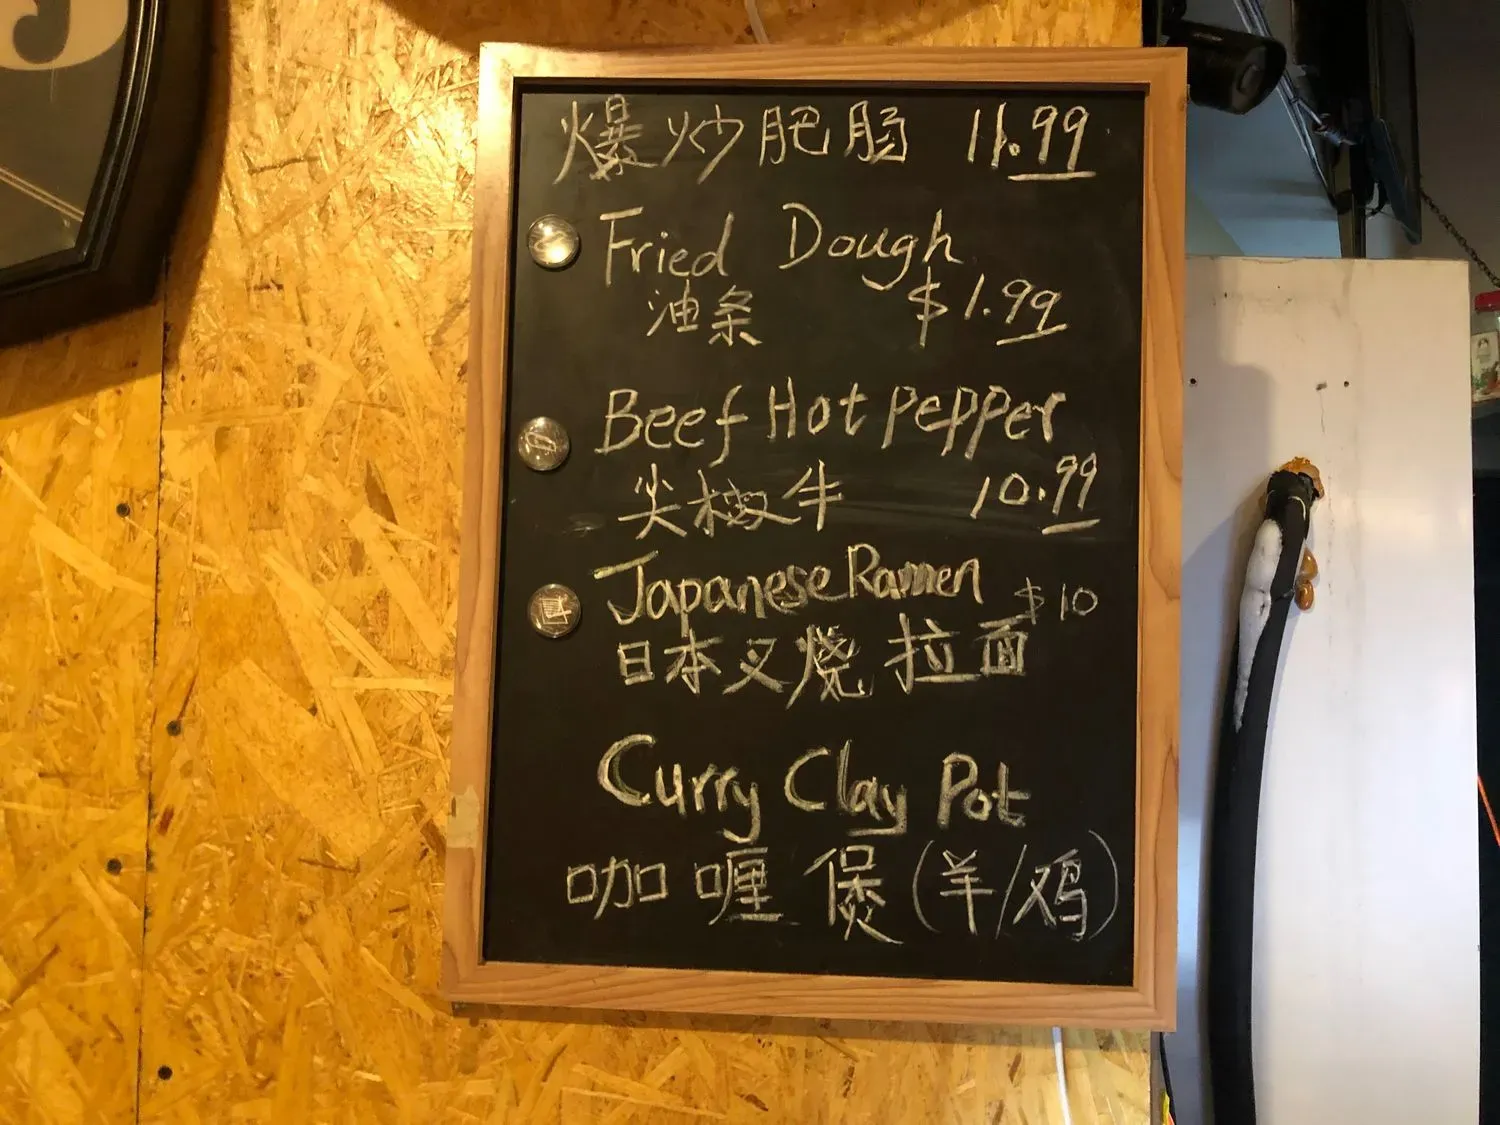 爆炒肥肠 11.99
Fried Dough
油条 $1.99
Beef Hot Pepper
尖椒牛 10.99
Japanese Ramen $10
日本叉烧拉面
Curry Clay Pot
咖喱煲(羊/鸡)